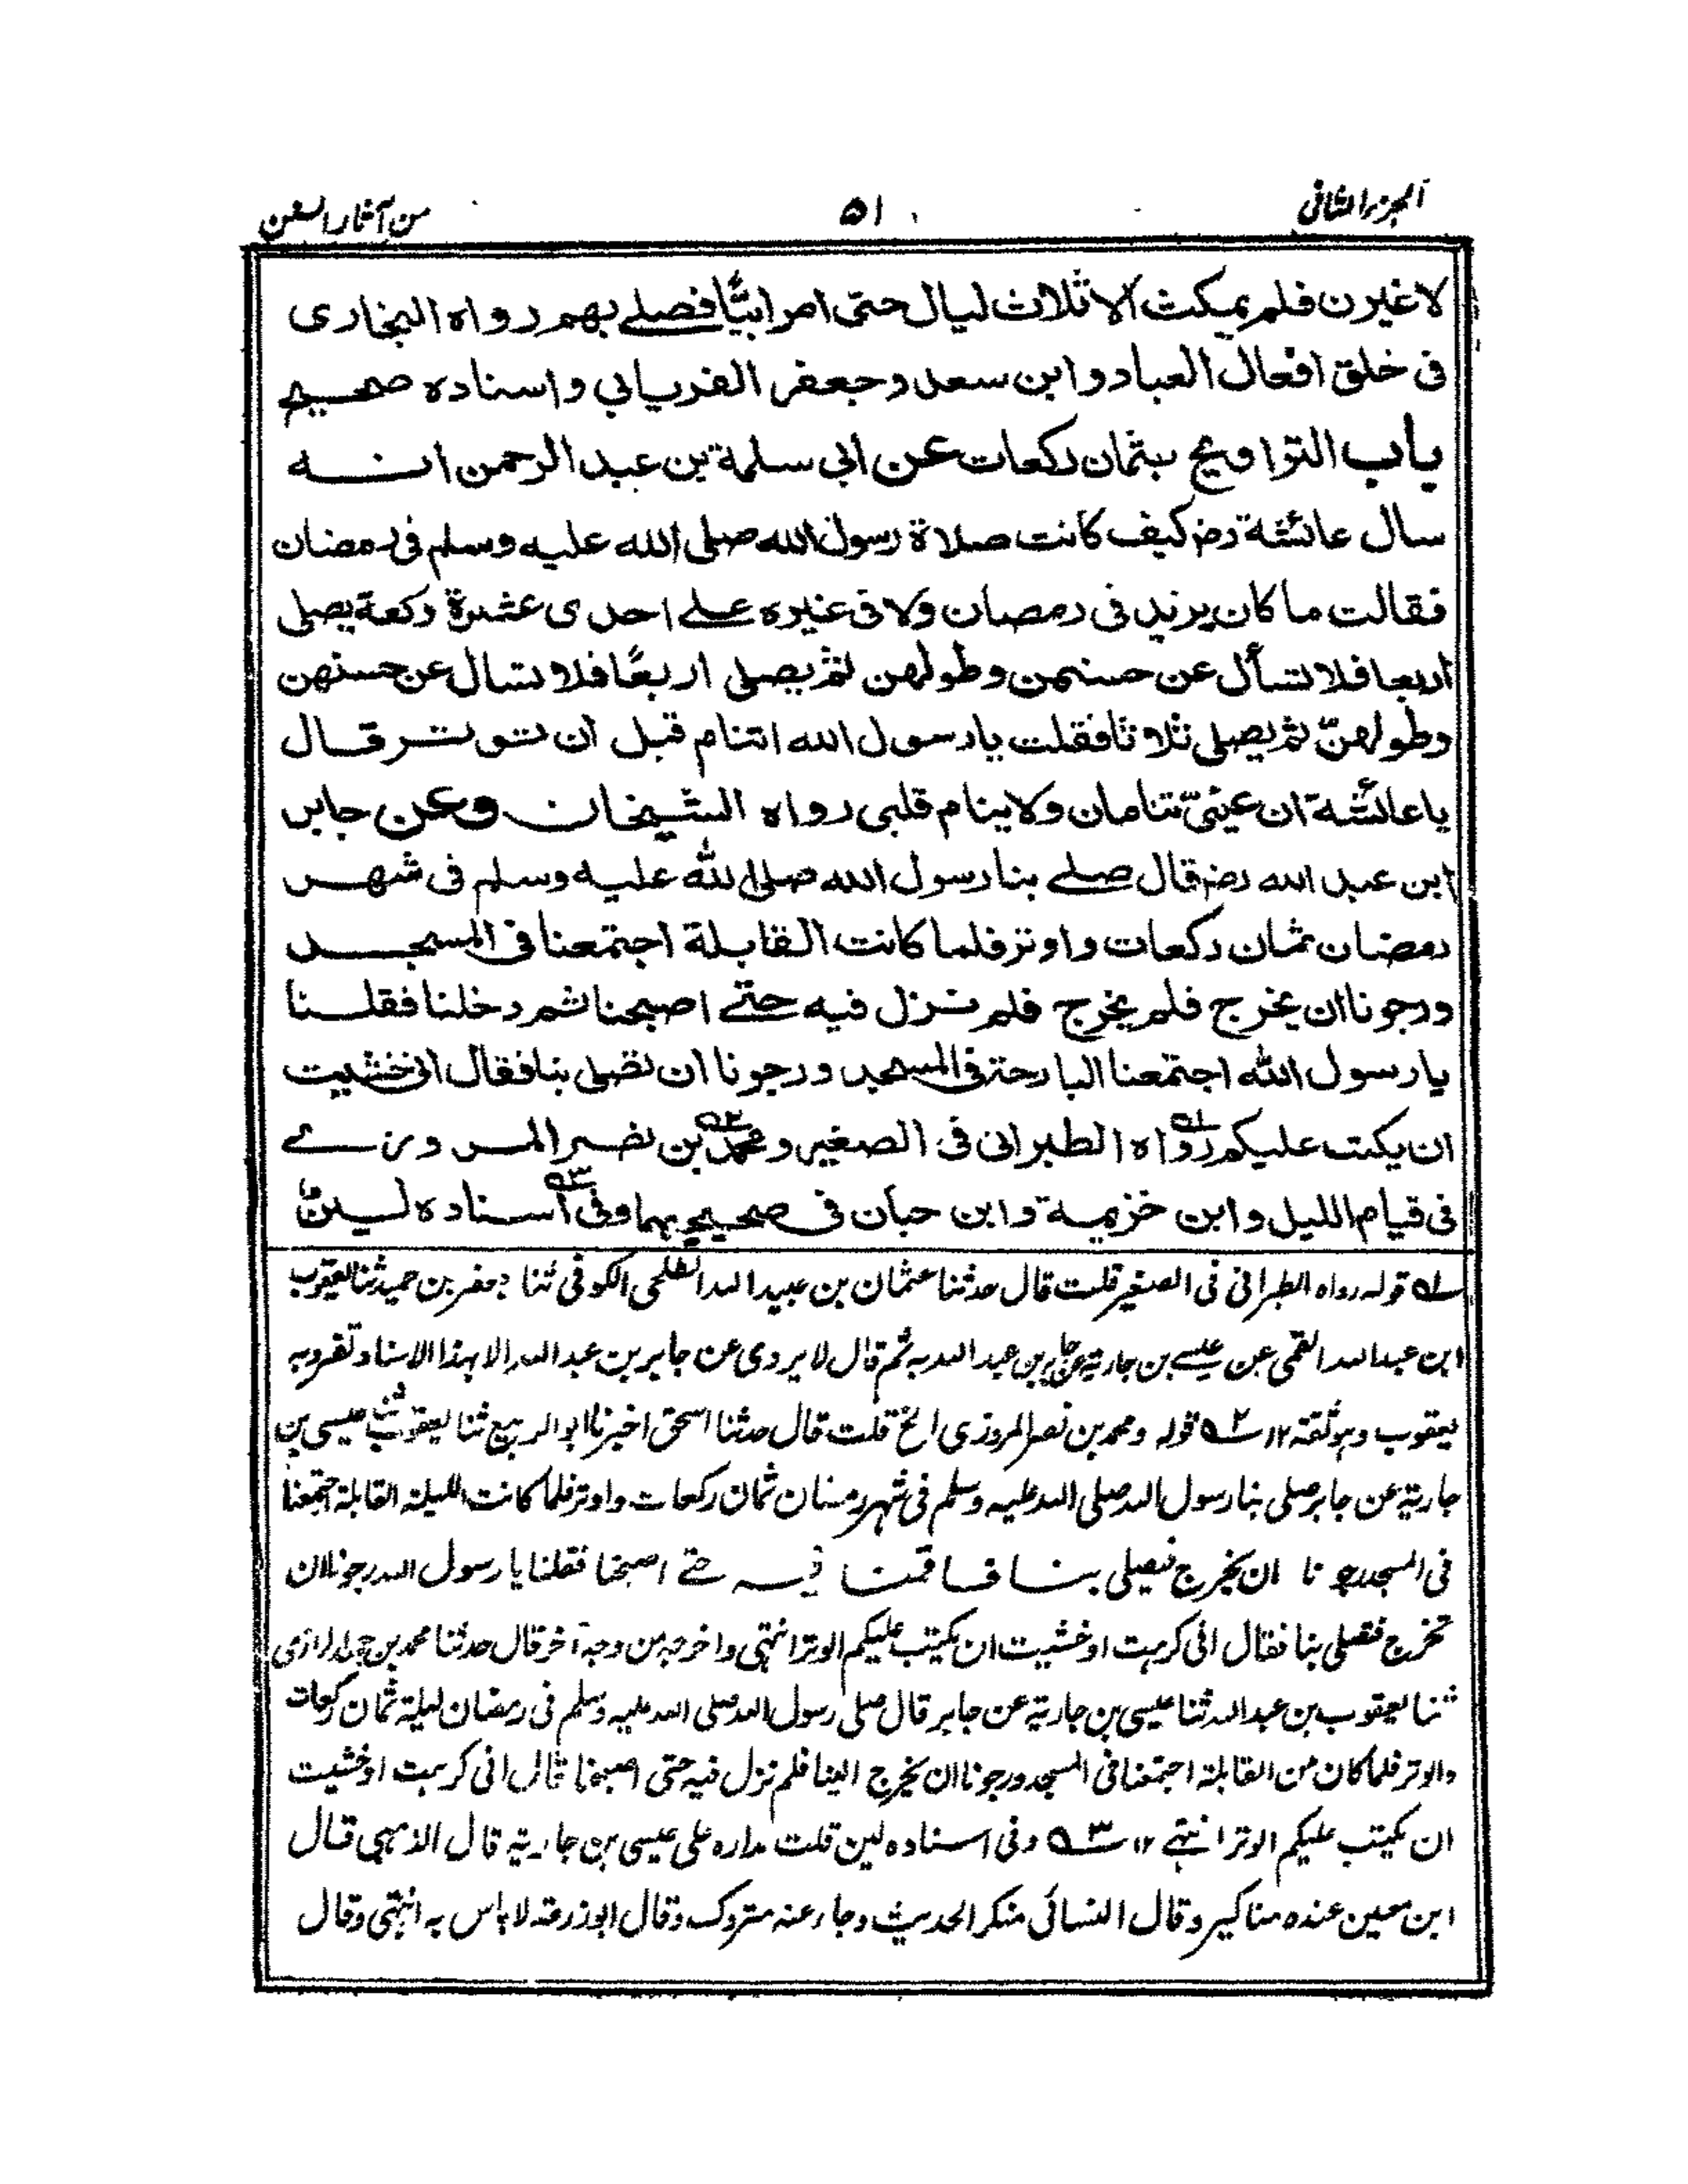 الجزء الثانی ۵۱ من آثار السنن
لاغیرن فلم یمکث الا ثلاث لیال حتی امر ابیًّا فصلے بهم رواه البخاری
فی خلق افعال العباد وابن سعد وجعفر الفریابی واسناده صحیح
باب التراویح بثمان رکعات عن ابی سلمة بن عبد الرحمن انه
سال عائشة رضـ کیف کانت صلاة رسول الله صلی الله علیه وسلم فی رمضان
فقالت ما کان یزید فی رمضان ولا فی غیره علے احدی عشرة رکعة یصلی
اربعا فلا تسأل عن حسنهن وطولهن ثم یصلی اربعًا فلا تسال عن حسنهن
وطولهنّ ثم یصلی ثلاثا فقلت یا رسول الله اتنام قبل ان توتر قال
یا عائشة ان عینیّ تنامان ولا ینام قلبی رواه الشیخان وعن جابر
ابن عبد الله رضـ قال صلے بنا رسول الله صلی الله علیه وسلم فی شهر
رمضان ثمان رکعات واوتر فلما کانت القابلة اجتمعنا فی المسجد
ورجونا ان یخرج فلم یخرج فلم نزل فیه حتے اصبحنا ثم دخلنا فقلنا
یا رسول الله اجتمعنا البارحة فی المسجد ورجونا ان تصلی بنا فقال انی خشیت
ان یکتب علیکم رواه ۱؎ الطبرانی فی الصغیر ومحمد ۲؎ بن نصر المروزے
فی قیام اللیل وابن خزیمة وابن حبان فی صحیحیهما وفی ۳؎ اسناده لین
۱؎ قوله رواه الطبرانی فی الصغیر قلت قال حدثنا عثمان بن عبید الله الطلحی الکوفی ثنا جعفر بن حمید ثنا یعقوب
ابن عبد الله القمی عن عیسے بن جاریة عن جابر بن عبد الله به ثم قال لا یروی عن جابر بن عبد الله الا بهذا الاسناد تفرد به
یعقوب وهو ثقة ۱۲ ۲؎ قوله ومحمد بن نصر المروزی الخ قلت قال حدثنا اسحق اخبرنا ابو الربیع ثنا یعقوب ثنا عیسی بن
جاریة عن جابر صلی بنا رسول الله صلی الله علیه وسلم فی شهر رمضان ثمان رکعات واوتر فلما کانت اللیلة القابلة اجتمعنا
فی المسجد رجونا ان یخرج فیصلی بنا فاقمنا فیه حتے اصبحنا فقلنا یا رسول الله رجونا ان
تخرج فتصلی بنا فقال انی کرهت او خشیت ان یکتب علیکم الوتر انتهی واخرجه من وجه آخر قال حدثنا محمد بن حمید الرازی
ثنا یعقوب بن عبد الله ثنا عیسی بن جاریة عن جابر قال صلی رسول الله صلی الله علیه وسلم فی رمضان لیلة ثمان رکعات
والوتر فلما کان من القابلة اجتمعنا فی المسجد ورجونا ان یخرج الینا فلم نزل فیه حتی اصبحنا قال انی کرهت او خشیت
ان یکتب علیکم الوتر انتهے ۱۲ ۳؎ وفی اسناده لین قلت مداره علی عیسی بن جاریة قال الذهبی قال
ابن معین عنده مناکیر وقال النسائی منکر الحدیث وجاء عنه متروک وقال ابو زرعة لا باس به انتهی وقال